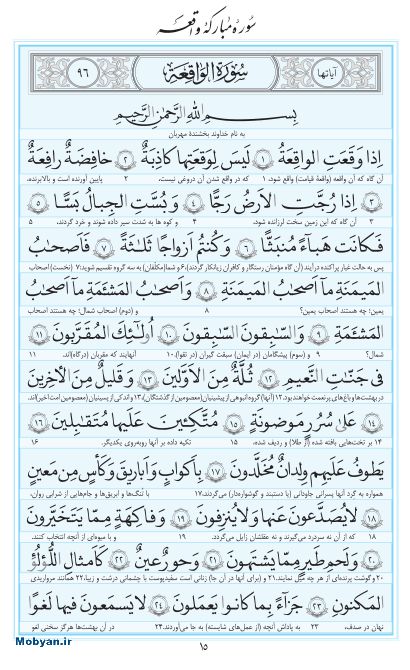 سورهٔ مبارکهٔ واقعه
آیاتها سُورَةُ الوَاقِعَةِ ۹۶
بِسمِ اللهِ الرَّحمٰنِ الرَّحیمِ
به نام خداوند بخشندهٔ مهربان
اِذا وَقَعَتِ الواقِعَةُ ۱ لَیسَ لِوَقعَتِها کاذِبَةٌ ۲ خافِضَةٌ رافِعَةٌ
آن گاه که آن واقعه (واقعهٔ قیامت) واقع شود، ۱ که در واقع شدن آن دروغی نیست، ۲ پایین آورنده است و بالابرنده.
۳ اِذا رُجَّتِ الاَرضُ رَجًّا ۴ وَ بُسَّتِ الجِبالُ بَسًّا ۵
۳ آن گاه که این زمین سخت لرزانده شود. ۴ و کوه ها به شدت سیر داده شوند و خرد گردند، ۵
فَکانَت هَباءً مُنبَثًّا ۶ وَ کُنتُم اَزواجًا ثَلاثَةً ۷ فَاَصحابُ
پس به حالت غبار پراکنده درآیند (آن گاه مؤمنان رستگار و کافران زیانکار گردند) ۶ و شما (مکلّفان) به سه گروه تقسیم شوید: ۷ (نخست) اصحاب
المَیمَنَةِ ما اَصحابُ المَیمَنَةِ ۸ وَ اَصحابُ المَشئَمَةِ ما اَصحابُ
یمین؛ چه هستند اصحاب یمین؟ ۸ و (دوم) اصحاب شمال؛ چه هستند اصحاب
المَشئَمَةِ ۹ وَ السّابِقونَ السّابِقونَ ۱۰ اُولٰئِکَ المُقَرَّبونَ ۱۱
شمال؟ ۹ و (سوم) پیشگامان (در ایمان) سبقت گیران (در تقوا)، ۱۰ آنهایند که مقربان (درگاه)اند. ۱۱
فی جَنّاتِ النَّعیمِ ۱۲ ثُلَّةٌ مِنَ الاَوَّلینَ ۱۳ وَ قَلیلٌ مِنَ الآخِرینَ
در بهشت‌ها و باغ‌های پرنعمت خواهند بود. ۱۲ (آنها) گروه انبوهی از پیشینیان (معصومین از گذشتگان)، ۱۳ و اندکی از پسینیان (معصومین امت اخیر)اند.
۱۴ عَلیٰ سُرُرٍ مَوضونَةٍ ۱۵ مُتَّکِئینَ عَلَیها مُتَقابِلینَ ۱۶
۱۴ بر تخت‌هایی بافته شده (از طلا) و ردیف شده، ۱۵ تکیه داده بر آنها روبه‌روی یکدیگر. ۱۶
یَطوفُ عَلَیهِم وِلدانٌ مُخَلَّدونَ ۱۷ بِاَکوابٍ وَ اَباریقَ وَ کَأسٍ مِن مَعینٍ
همواره به گرد آنها پسرانی جاودانی (یا دستبند و گوشواره‌دار) می‌گردند. ۱۷ با تنگ‌ها و ابریق‌ها و جام‌هایی از شرابی روان،
۱۸ لا یُصَدَّعونَ عَنها وَ لا یُنزِفونَ ۱۹ وَ فاکِهَةٍ مِمّا یَتَخَیَّرونَ
۱۸ که از آن نه سردرد می‌گیرند و نه عقلشان زایل می‌گردد. ۱۹ و با میوه‌ای از آنچه انتخاب کنند.
۲۰ وَ لَحمِ طَیرٍ مِمّا یَشتَهونَ ۲۱ وَ حورٌ عینٌ ۲۲ کَاَمثالِ اللُّؤلُؤِ
۲۰ و گوشت پرنده‌ای از هر چه میل نمایند. ۲۱ و (برای آنها در آن جا) زنانی است سفیدپوست با چشمانی درشت و زیبا، ۲۲ همانند مرواریدی
المَکنونِ ۲۳ جَزاءً بِما کانوا یَعمَلونَ ۲۴ لا یَسمَعونَ فیها لَغوًا
نهان در صدف، ۲۳ به پاداش آنچه (از عمل‌های شایسته) به جا می‌آوردند. ۲۴ در آن بهشت‌ها هرگز سخنی لغو
Mobyan.ir
۱۵